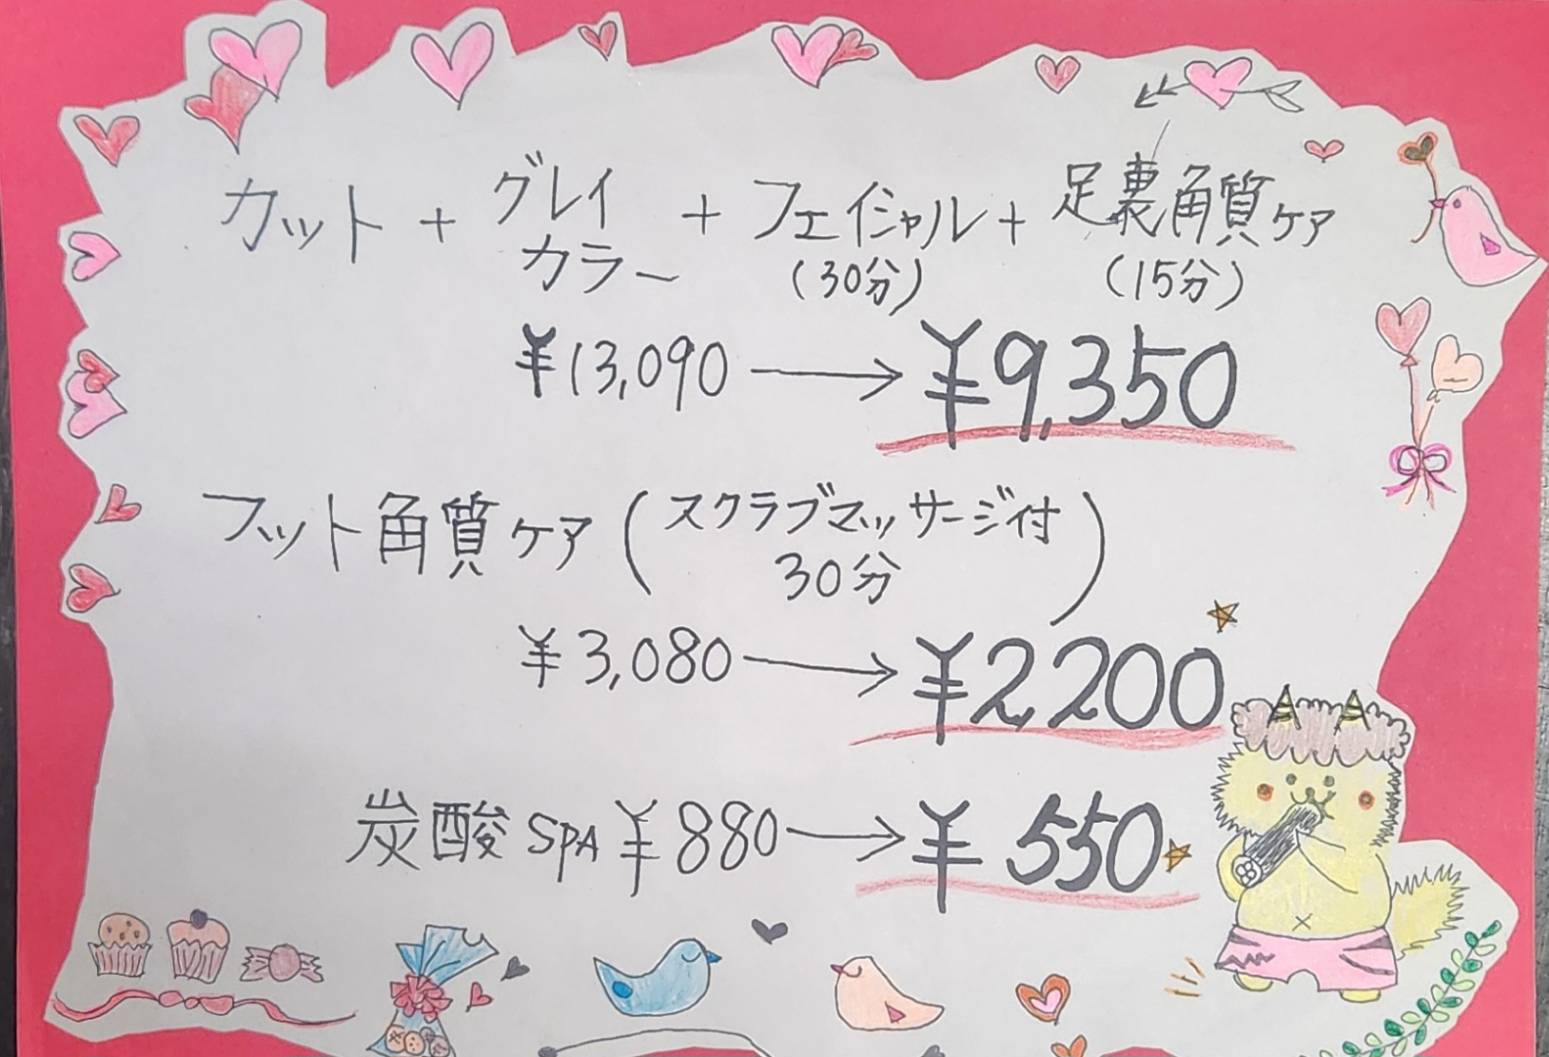 カット + グレイカラー + フェイシャル(30分) + 足裏角質ケア(15分)
¥13,090 → ¥9,350
フット角質ケア(スクラブマッサージ付 30分)
¥3,080 → ¥2,200
炭酸SPA ¥880 → ¥550